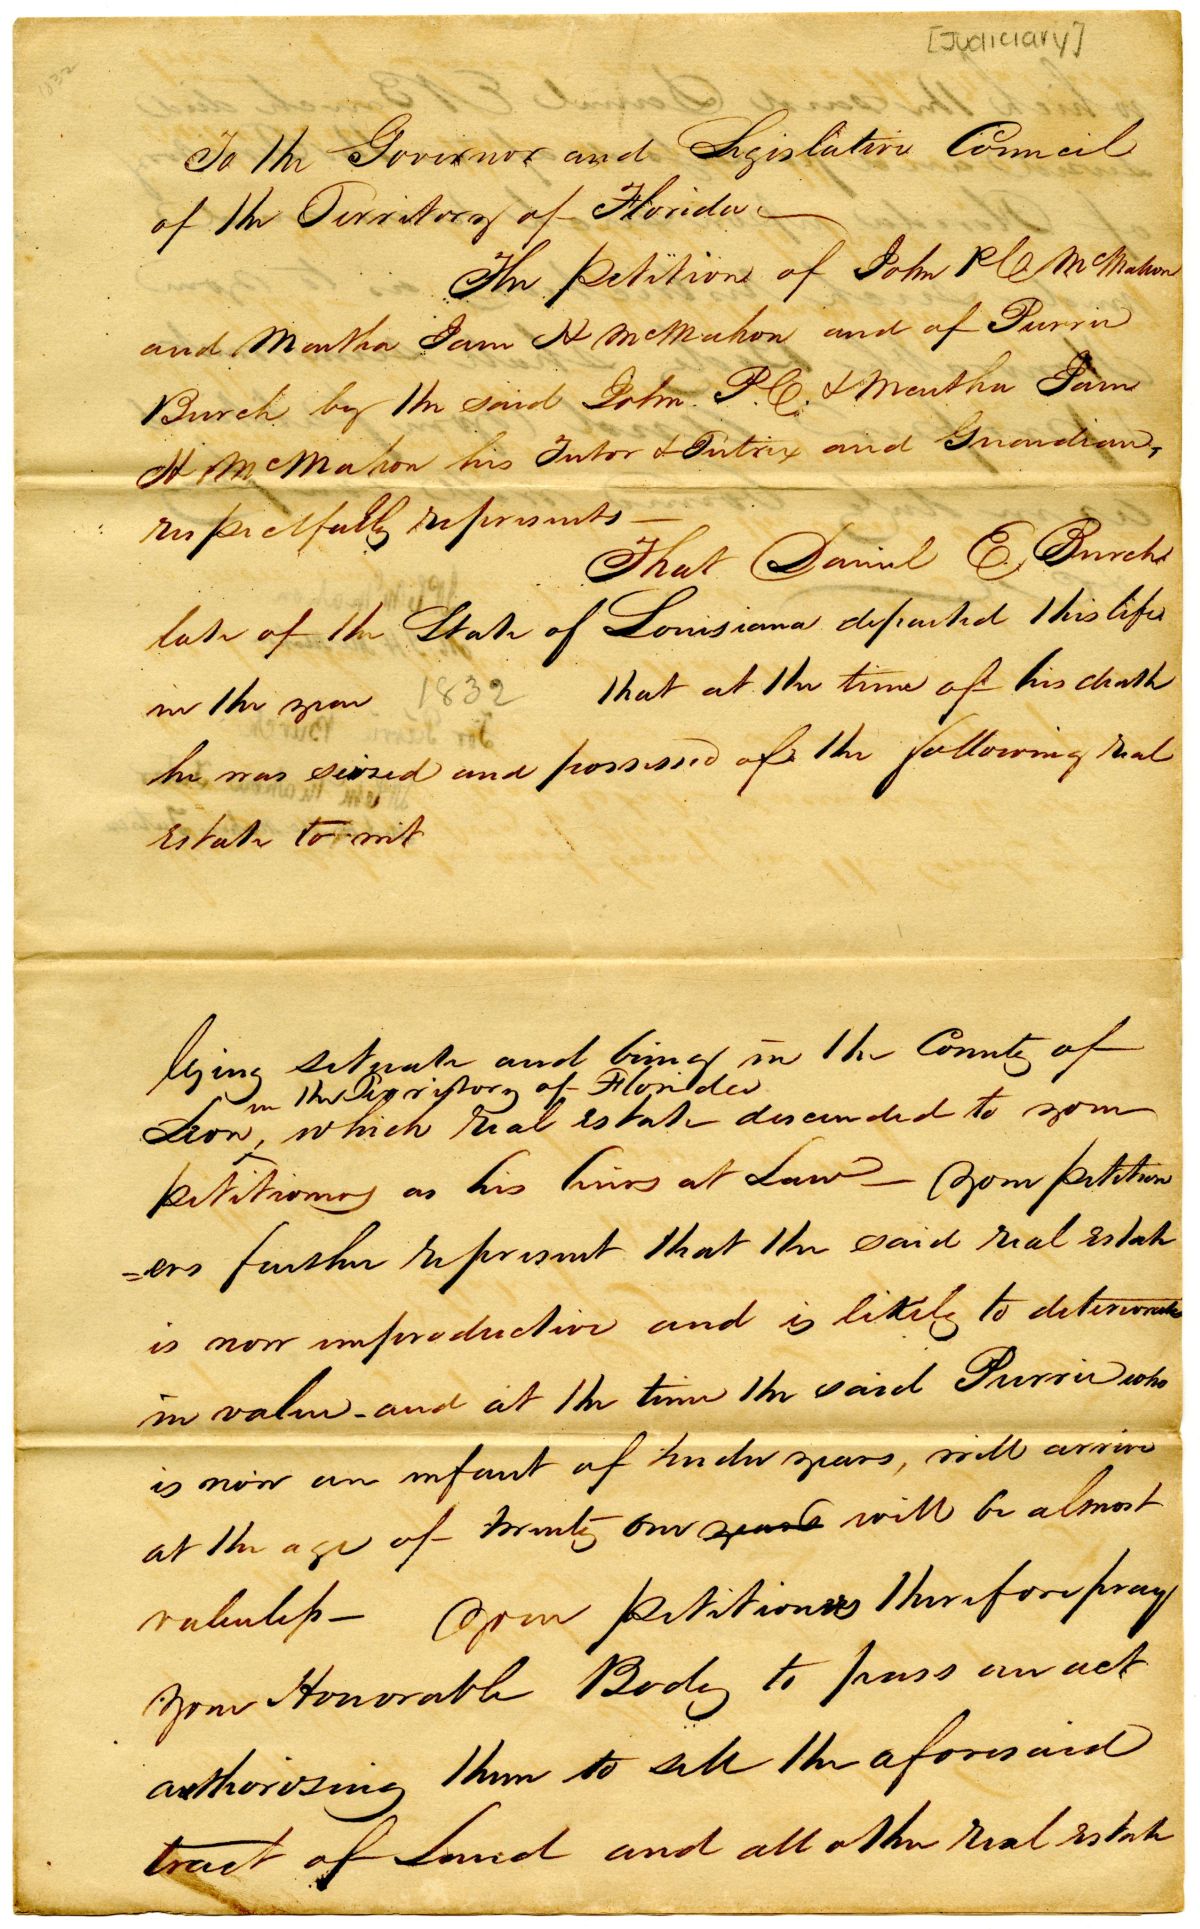 [Judiciary]
1832
To the Governor and Legislative Council
of the Territory of Florida
The petition of John P C McMahon
and Martha Jane H McMahon and of Purrie
Burch by the said John P. C. & Martha Jane
H McMahon his Tutor & Tutrix and Guardian,
respectfully represents—
That Daniel E. Burch
late of the State of Louisiana departed this life
in the year 1832 that at the time of his death
he was seized and possessed of the following real
estate to wit
lying situate and being in the County of
in the Territory of Florida
Leon, which real estate descended to your
petitioners as his heirs at Law— Your petition
=ers further represent that the said real estate
is now unproductive and is likely to deteriorate
in value - and at the time the said Purrie who
is now an infant of tender years, will arrive
at the age of twenty one years will be almost
valueless— Your petitioners therefore pray
your Honorable Body to pass an act
authorising them to sell the aforesaid
tract of Land and all other real estate